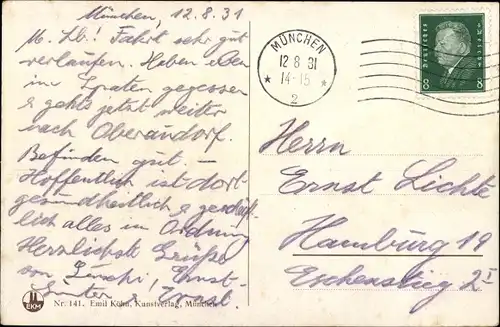 München, 12.8.31
M. Lb.! Fahrt sehr gut
verlaufen. Haben eben
im Spaten gegessen
& geht's jetzt weiter
nach Oberaudorf.
Befinden gut. –
Hoffentlich ist dort
gesundheitlich & geschäft-
lich alles in Ordnung
Herzlichste Grüße
von Ernst-
Günter &
EKM
Nr. 141. Emil Köhn, Kunstverlag, München
MÜNCHEN
12 8 31
14-15
2
Deutsches Reich
8 8
Herrn
Ernst Lichte
Hamburg 19
Eschenstieg 2 I